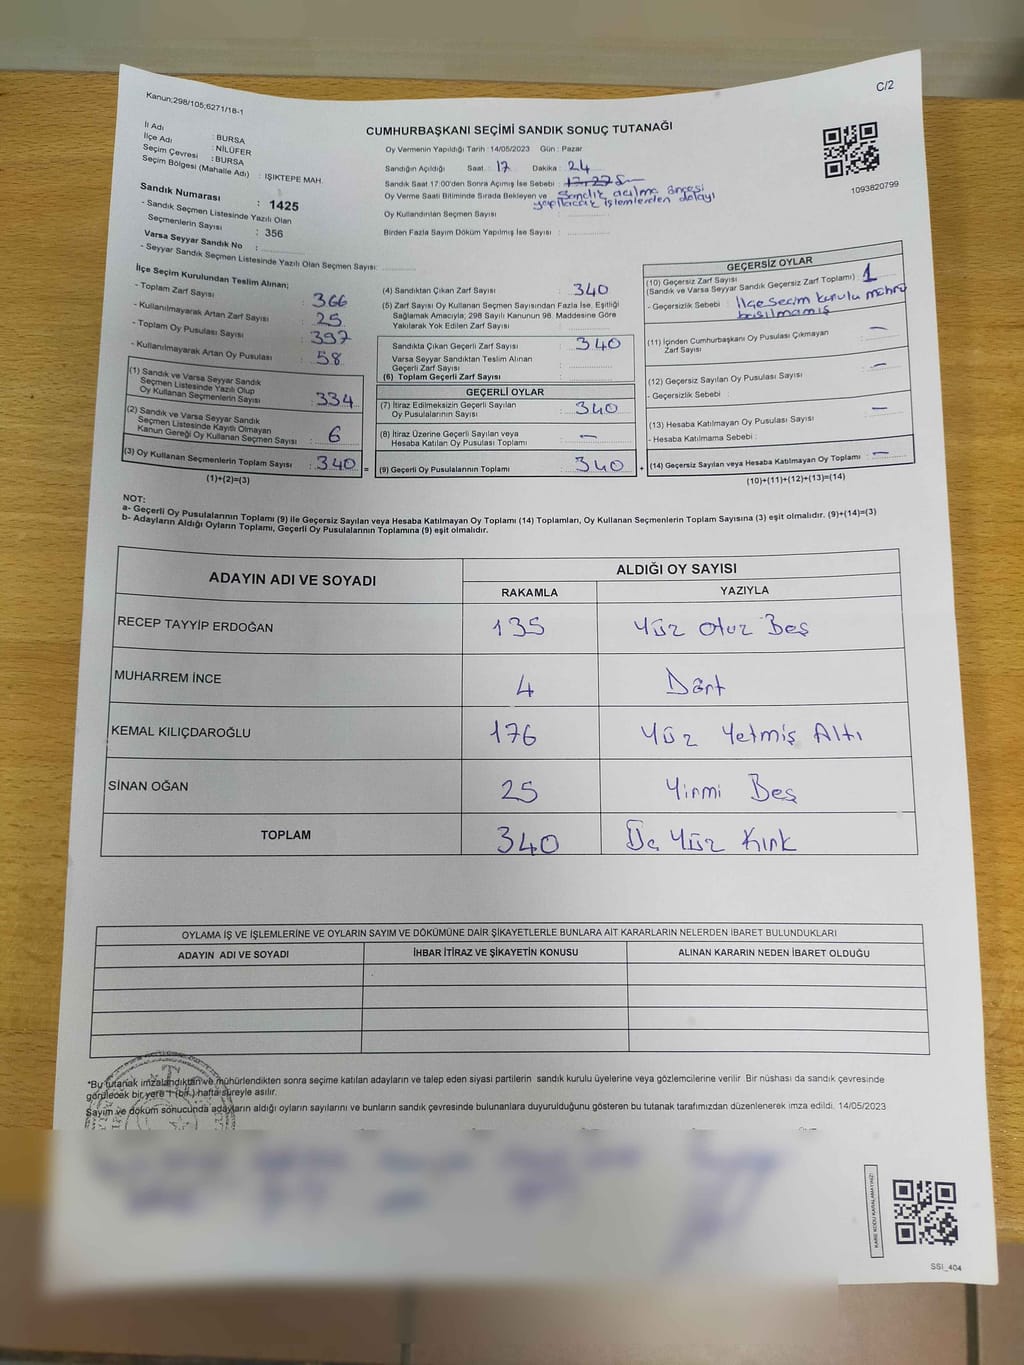 Kanun;298/105;6271/18-1
C/2
CUMHURBAŞKANI SEÇİMİ SANDIK SONUÇ TUTANAĞI
İl Adı : BURSA
İlçe Adı : NİLÜFER
Seçim Çevresi : BURSA
Seçim Bölgesi (Mahalle Adı) : IŞIKTEPE MAH.
Sandık Numarası : 1425
- Sandık Seçmen Listesinde Yazılı Olan
Seçmenlerin Sayısı : 356
Varsa Seyyar Sandık No :
- Seyyar Sandık Seçmen Listesinde Yazılı Olan Seçmen Sayısı:
Oy Vermenin Yapıldığı Tarih : 14/05/2023 Gün : Pazar
Sandığın Açıldığı Saat : 17 Dakika : 24
Sandık Saat 17:00'den Sonra Açımış İse Sebebi :
Oy Verme Saati Bitiminde Sırada Bekleyen ve : Sandık açılma öncesi
yapılacak işlemlerden dolayı
Oy Kullandırılan Seçmen Sayısı :
Birden Fazla Sayım Döküm Yapılmış İse Sayısı :
1093820799
İlçe Seçim Kurulundan Teslim Alınan;
- Toplam Zarf Sayısı : 366
- Kullanılmayarak Artan Zarf Sayısı : 25
- Toplam Oy Pusulası Sayısı : 397
- Kullanılmayarak Artan Oy Pusulası : 58
(1) Sandık ve Varsa Seyyar Sandık
Seçmen Listesinde Yazılı Olup
Oy Kullanan Seçmenlerin Sayısı : 334
(2) Sandık ve Varsa Seyyar Sandık
Seçmen Listesinde Kayıtlı Olmayan
Kanun Gereği Oy Kullanan Seçmen Sayısı : 6
(3) Oy Kullanan Seçmenlerin Toplam Sayısı : 340 =
(1)+(2)=(3)
(4) Sandıktan Çıkan Zarf Sayısı : 340
(5) Zarf Sayısı Oy Kullanan Seçmen Sayısından Fazla İse, Eşitliği
Sağlamak Amacıyla; 298 Sayılı Kanunun 98. Maddesine Göre
Yakılarak Yok Edilen Zarf Sayısı :
Sandıkta Çıkan Geçerli Zarf Sayısı : 340
Varsa Seyyar Sandıktan Teslim Alınan
Geçerli Zarf Sayısı :
(6) Toplam Geçerli Zarf Sayısı :
GEÇERLİ OYLAR
(7) İtiraz Edilmeksizin Geçerli Sayılan
Oy Pusulalarının Sayısı : 340
(8) İtiraz Üzerine Geçerli Sayılan veya
Hesaba Katılan Oy Pusulası Toplamı : —
(9) Geçerli Oy Pusulalarının Toplamı : 340 +
GEÇERSİZ OYLAR
(10) Geçersiz Zarf Sayısı
(Sandık ve Varsa Seyyar Sandık Geçersiz Zarf Toplamı) : 1
- Geçersizlik Sebebi : İlçe seçim kurulu mührü
basılmamış
(11) İçinden Cumhurbaşkanı Oy Pusulası Çıkmayan
Zarf Sayısı : —
(12) Geçersiz Sayılan Oy Pusulası Sayısı : —
- Geçersizlik Sebebi :
(13) Hesaba Katılmayan Oy Pusulası Sayısı : —
- Hesaba Katılmama Sebebi :
(14) Geçersiz Sayılan veya Hesaba Katılmayan Oy Toplamı : —
(10)+(11)+(12)+(13)=(14)
NOT:
a- Geçerli Oy Pusulalarının Toplamı (9) ile Geçersiz Sayılan veya Hesaba Katılmayan Oy Toplamı (14) Toplamları, Oy Kullanan Seçmenlerin Toplam Sayısına (3) eşit olmalıdır. (9)+(14)=(3)
b- Adayların Aldığı Oyların Toplamı, Geçerli Oy Pusulalarının Toplamına (9) eşit olmalıdır.
ADAYIN ADI VE SOYADI ALDIĞI OY SAYISI
RAKAMLA YAZIYLA
RECEP TAYYİP ERDOĞAN 135 Yüz Otuz Beş
MUHARREM İNCE 4 Dört
KEMAL KILIÇDAROĞLU 176 Yüz Yetmiş Altı
SİNAN OĞAN 25 Yirmi Beş
TOPLAM 340 Üç Yüz Kırk
OYLAMA İŞ VE İŞLEMLERİNE VE OYLARIN SAYIM VE DÖKÜMÜNE DAİR ŞİKAYETLERLE BUNLARA AİT KARARLARIN NELERDEN İBARET BULUNDUKLARI
ADAYIN ADI VE SOYADI İHBAR İTİRAZ VE ŞİKAYETİN KONUSU ALINAN KARARIN NEDEN İBARET OLDUĞU
*Bu tutanak imzalandıktan ve mühürlendikten sonra seçime katılan adayların ve talep eden siyasi partilerin sandık kurulu üyelerine veya gözlemcilerine verilir. Bir nüshası da sandık çevresinde
görülecek bir yere 1 (bir) hafta süreyle asılır.
Sayım ve döküm sonucunda adayların aldığı oyların sayılarını ve bunların sandık çevresinde bulunanlara duyurulduğunu gösteren bu tutanak tarafımızdan düzenlenerek imza edildi. 14/05/2023
KARE KODU KARALAMAYINIZ!
SSI_404